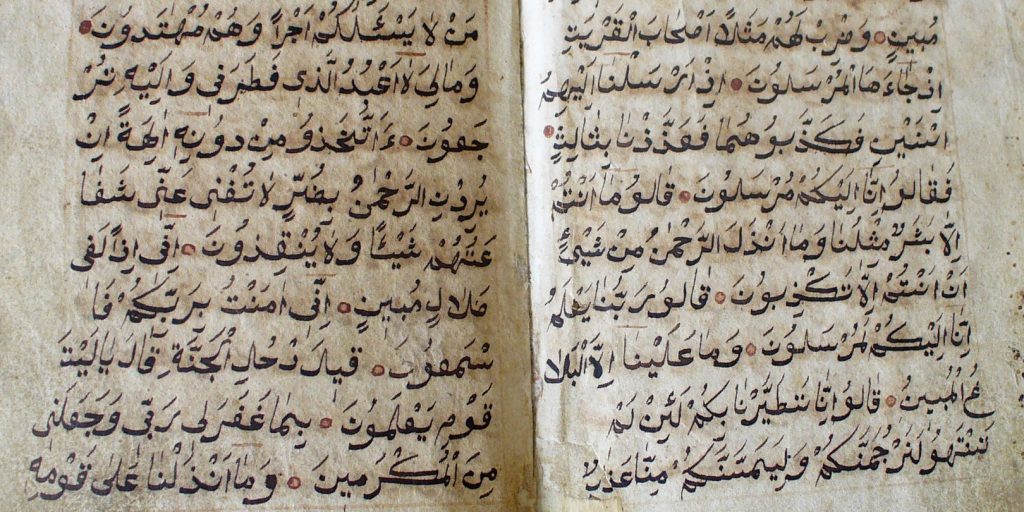 مُبِينٍ وَضْرِبْ لَهُمْ مَثَلًا اَصْحَابَ الْقَرْيَةِ
اِذْ جَاءَهَا الْمُرْسَلُونَ اِذْ اَرْسَلْنَا اِلَيْهِمُ
اثْنَيْنِ فَكَذَّبُوهُمَا فَعَزَّزْنَا بِثَالِثٍ
فَقَالُوا اِنَّا اِلَيْكُمْ مُرْسَلُونَ قَالُوا مَا اَنْتُمْ
اِلَّا بَشَرٌ مِثْلُنَا وَمَا اَنْزَلَ الرَّحْمٰنُ مِنْ شَيْءٍ
اِنْ اَنْتُمْ اِلَّا تَكْذِبُونَ قَالُوا رَبُّنَا يَعْلَمُ
اِنَّا اِلَيْكُمْ لَمُرْسَلُونَ وَمَا عَلَيْنَا اِلَّا الْبَلَا
غُ الْمُبِينُ قَالُوا اِنَّا تَطَيَّرْنَا بِكُمْ لَئِنْ لَمْ
تَنْتَهُوا لَنَرْجُمَنَّكُمْ وَلَيَمَسَّنَّكُمْ مِنَّا عَذَابٌ
مَنْ لَا يَسْئَلُكُمْ اَجْرًا وَهُمْ مُهْتَدُونَ
وَمَالِىَ لَا اَعْبُدُ الَّذِى فَطَرَنِى وَاِلَيْهِ تُرْ
جَعُونَ ءَاَتَّخِذُ مِنْ دُونِهِ اٰلِهَةً اِنْ
يُرِدْنِ الرَّحْمٰنُ بِضُرٍّ لَا تُغْنِ عَنِّى شَفَا
عَتُهُمْ شَيْئًا وَلَا يُنْقِذُونَ اِنِّى اِذًا لَفِى
ضَلَالٍ مُبِينٍ اِنِّى اٰمَنْتُ بِرَبِّكُمْ فَا
سْمَعُونِ قِيلَ ادْخُلِ الْجَنَّةَ قَالَ يَالَيْتَ
قَوْمِى يَعْلَمُونَ بِمَا غَفَرَ لِى رَبِّى وَجَعَلَنِى
مِنَ الْمُكْرَمِينَ وَمَا اَنْزَلْنَا عَلٰى قَوْمِهِ